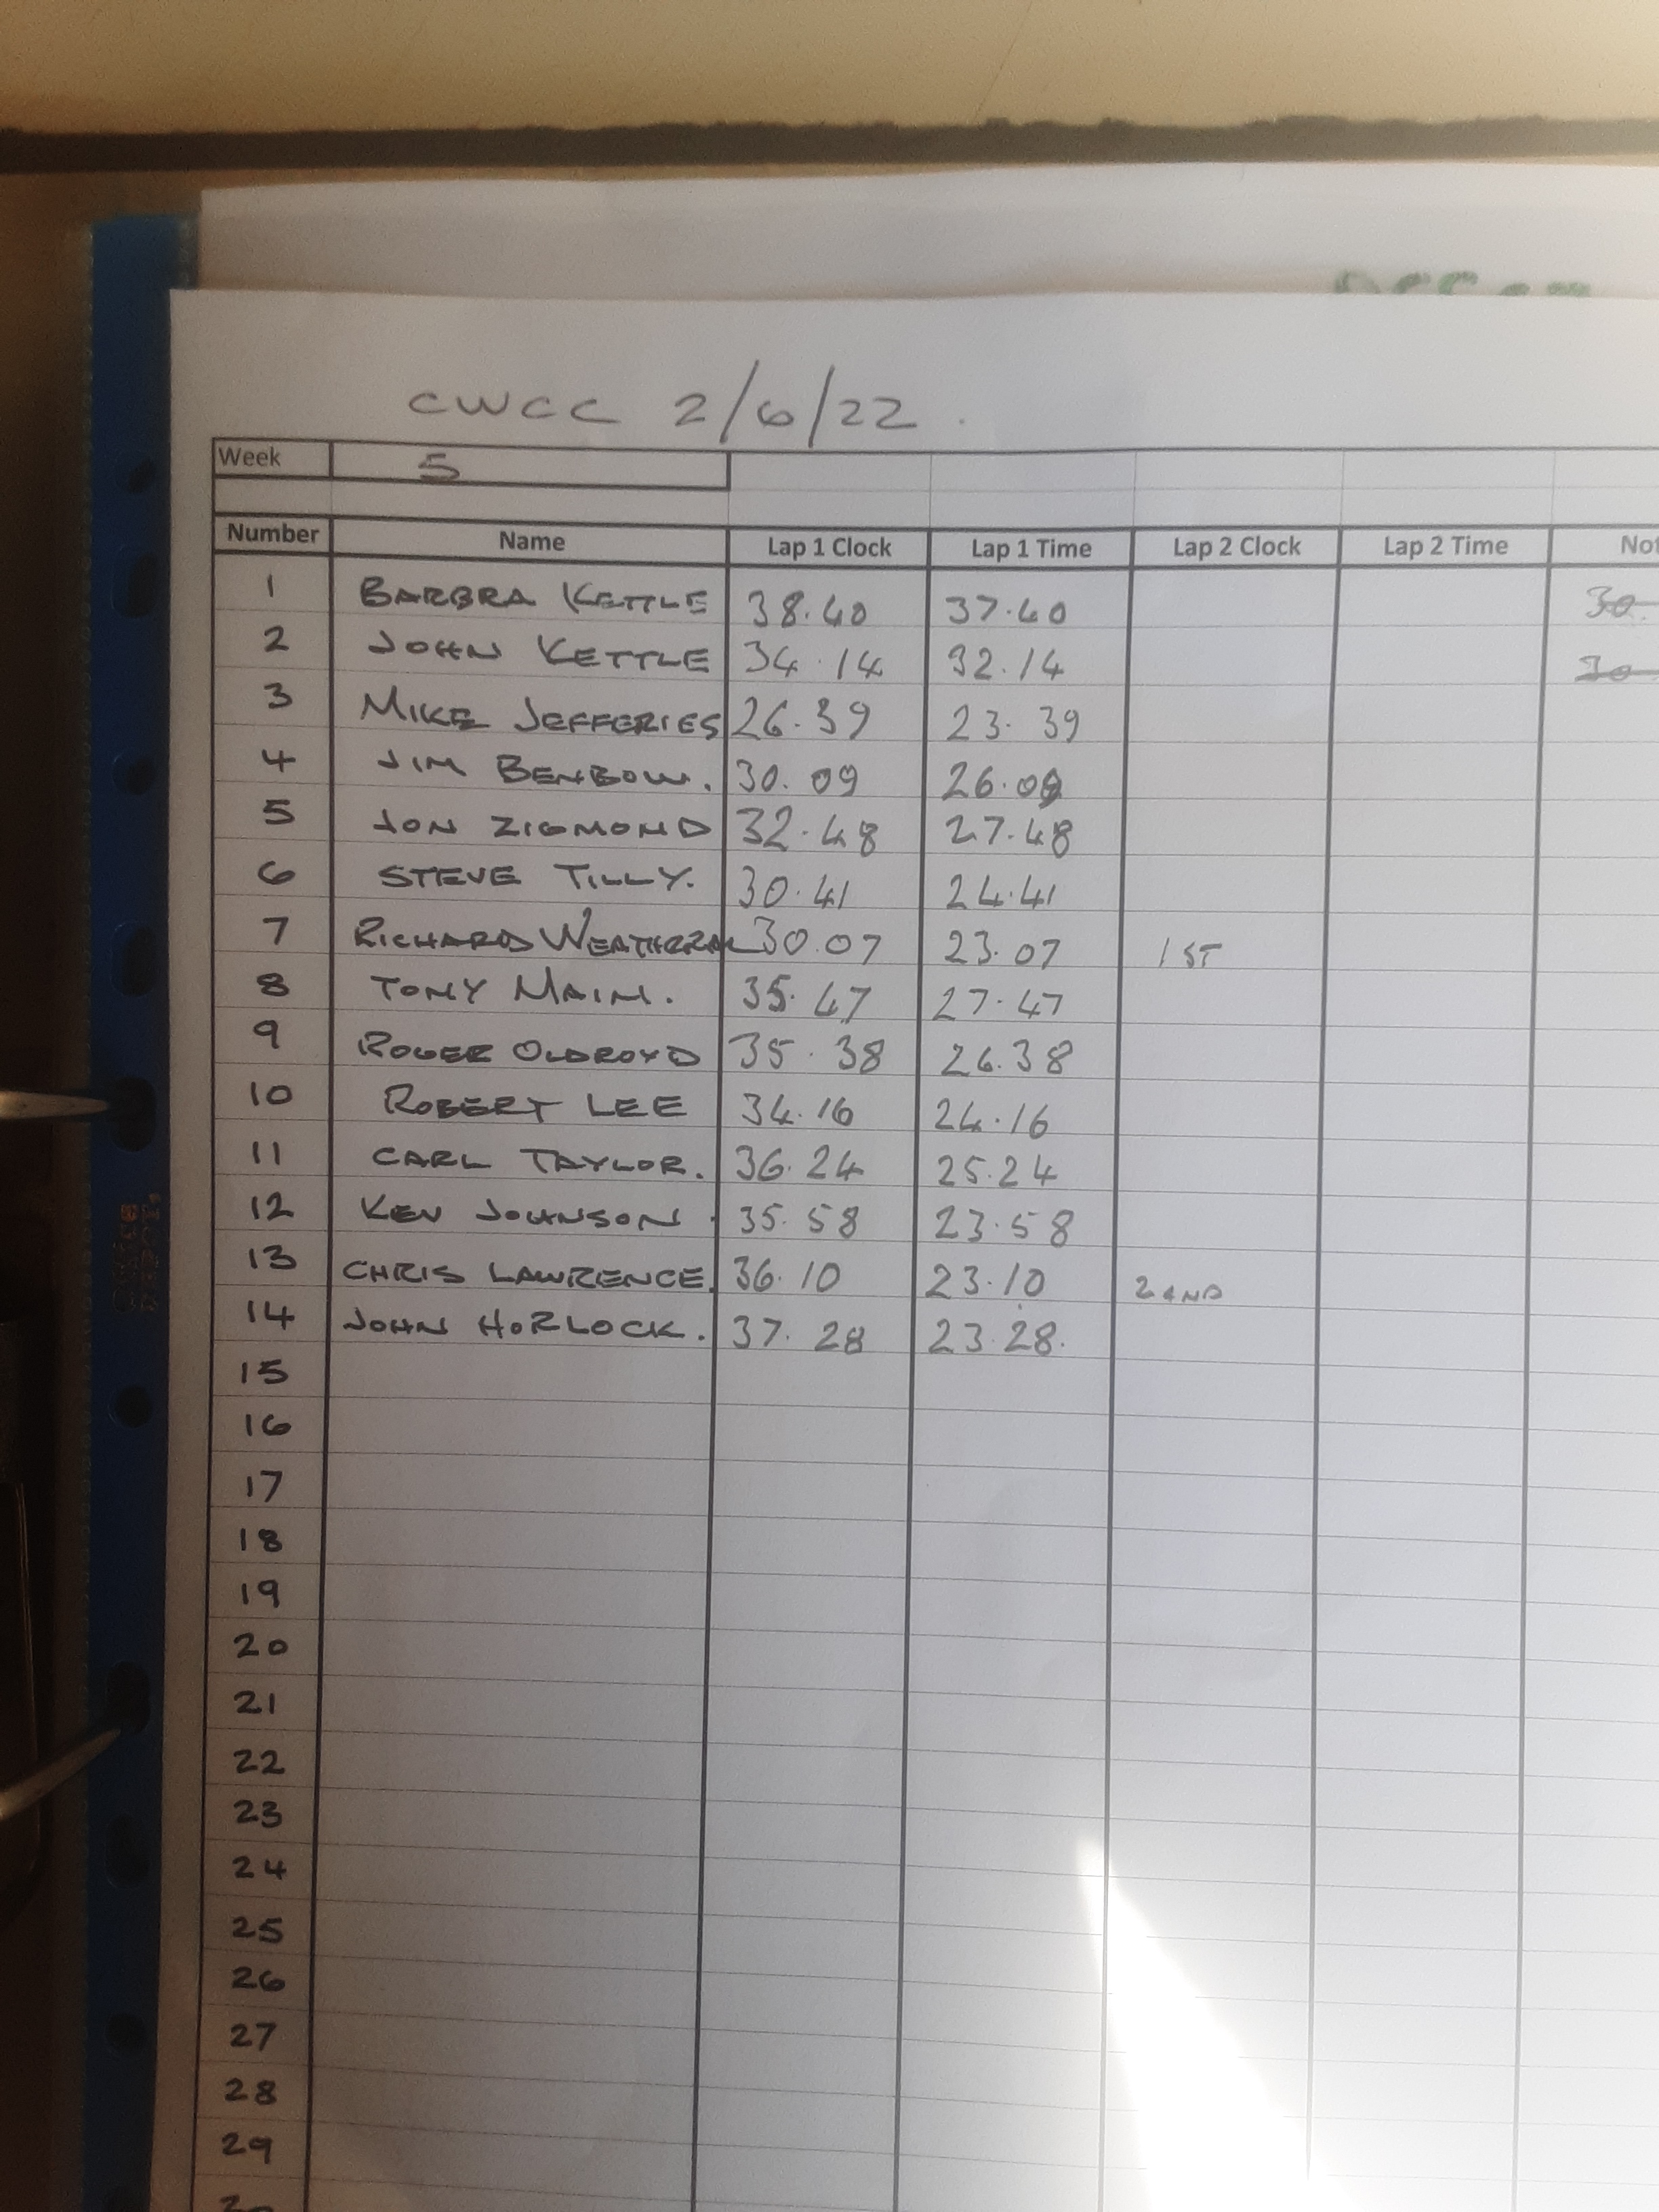 CWCC 2/6/22.
Week 5
Number Name Lap 1 Clock Lap 1 Time Lap 2 Clock Lap 2 Time Not
1 BARBRA KETTLE 38.40 37.40 30.
2 JOHN KETTLE 34.14 32.14 30
3 MIKE JEFFERIES 26.39 23.39
4 JIM BENBOW. 30.09 26.09
5 JON ZIGMOND 32.48 27.48
6 STEVE TILLY. 30.41 24.41
7 RICHARD WEATHERAL 30.07 23.07 1ST
8 TONY MAIN. 35.47 27.47
9 ROGER OLDROYD 35.38 26.38
10 ROBERT LEE 34.16 24.16
11 CARL TAYLOR. 36.24 25.24
12 KEV JOHNSON. 35.58 23.58
13 CHRIS LAWRENCE. 36.10 23.10
14 JOHN HORLOCK. 37.28 23.28.
15
16
17
18
19
20
21
22
23
24
25
26
27
28
29